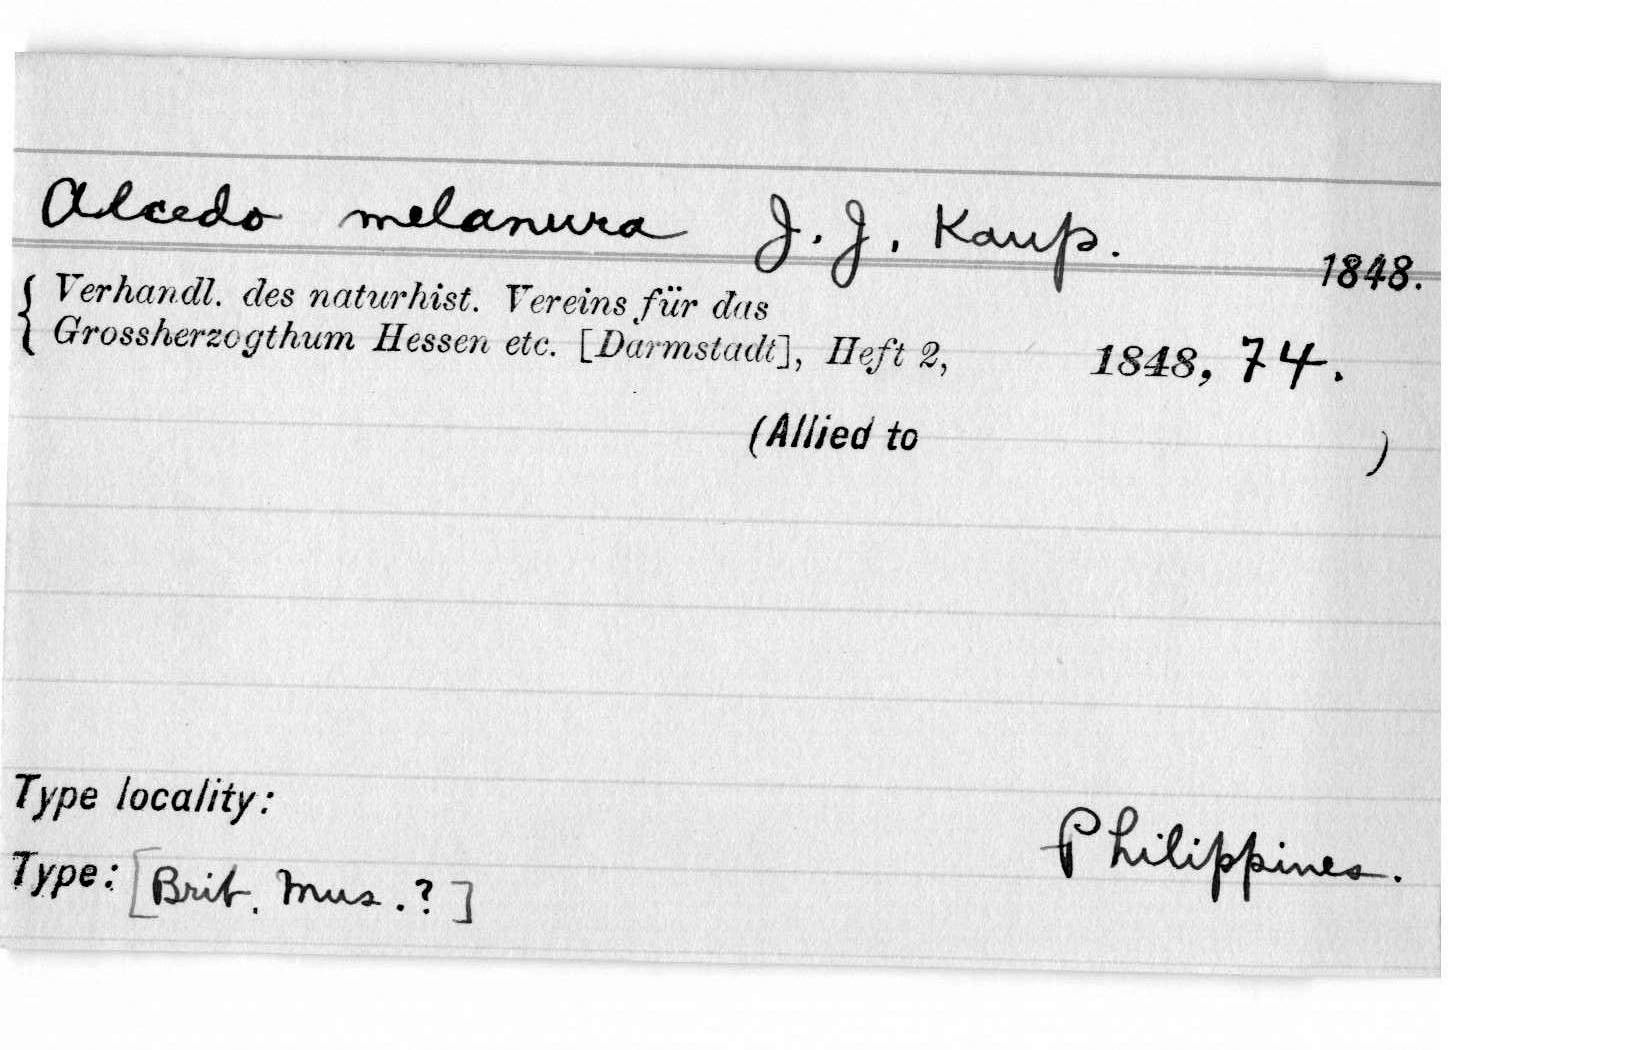 Alcedo melanura J. J. Kaup. 1848.
{ Verhandl. des naturhist. Vereins für das
Grossherzogthum Hessen etc. [Darmstadt], Heft 2, 1848, 74.
(Allied to )
Type locality: Philippines.
Type: [Brit. Mus. ?]